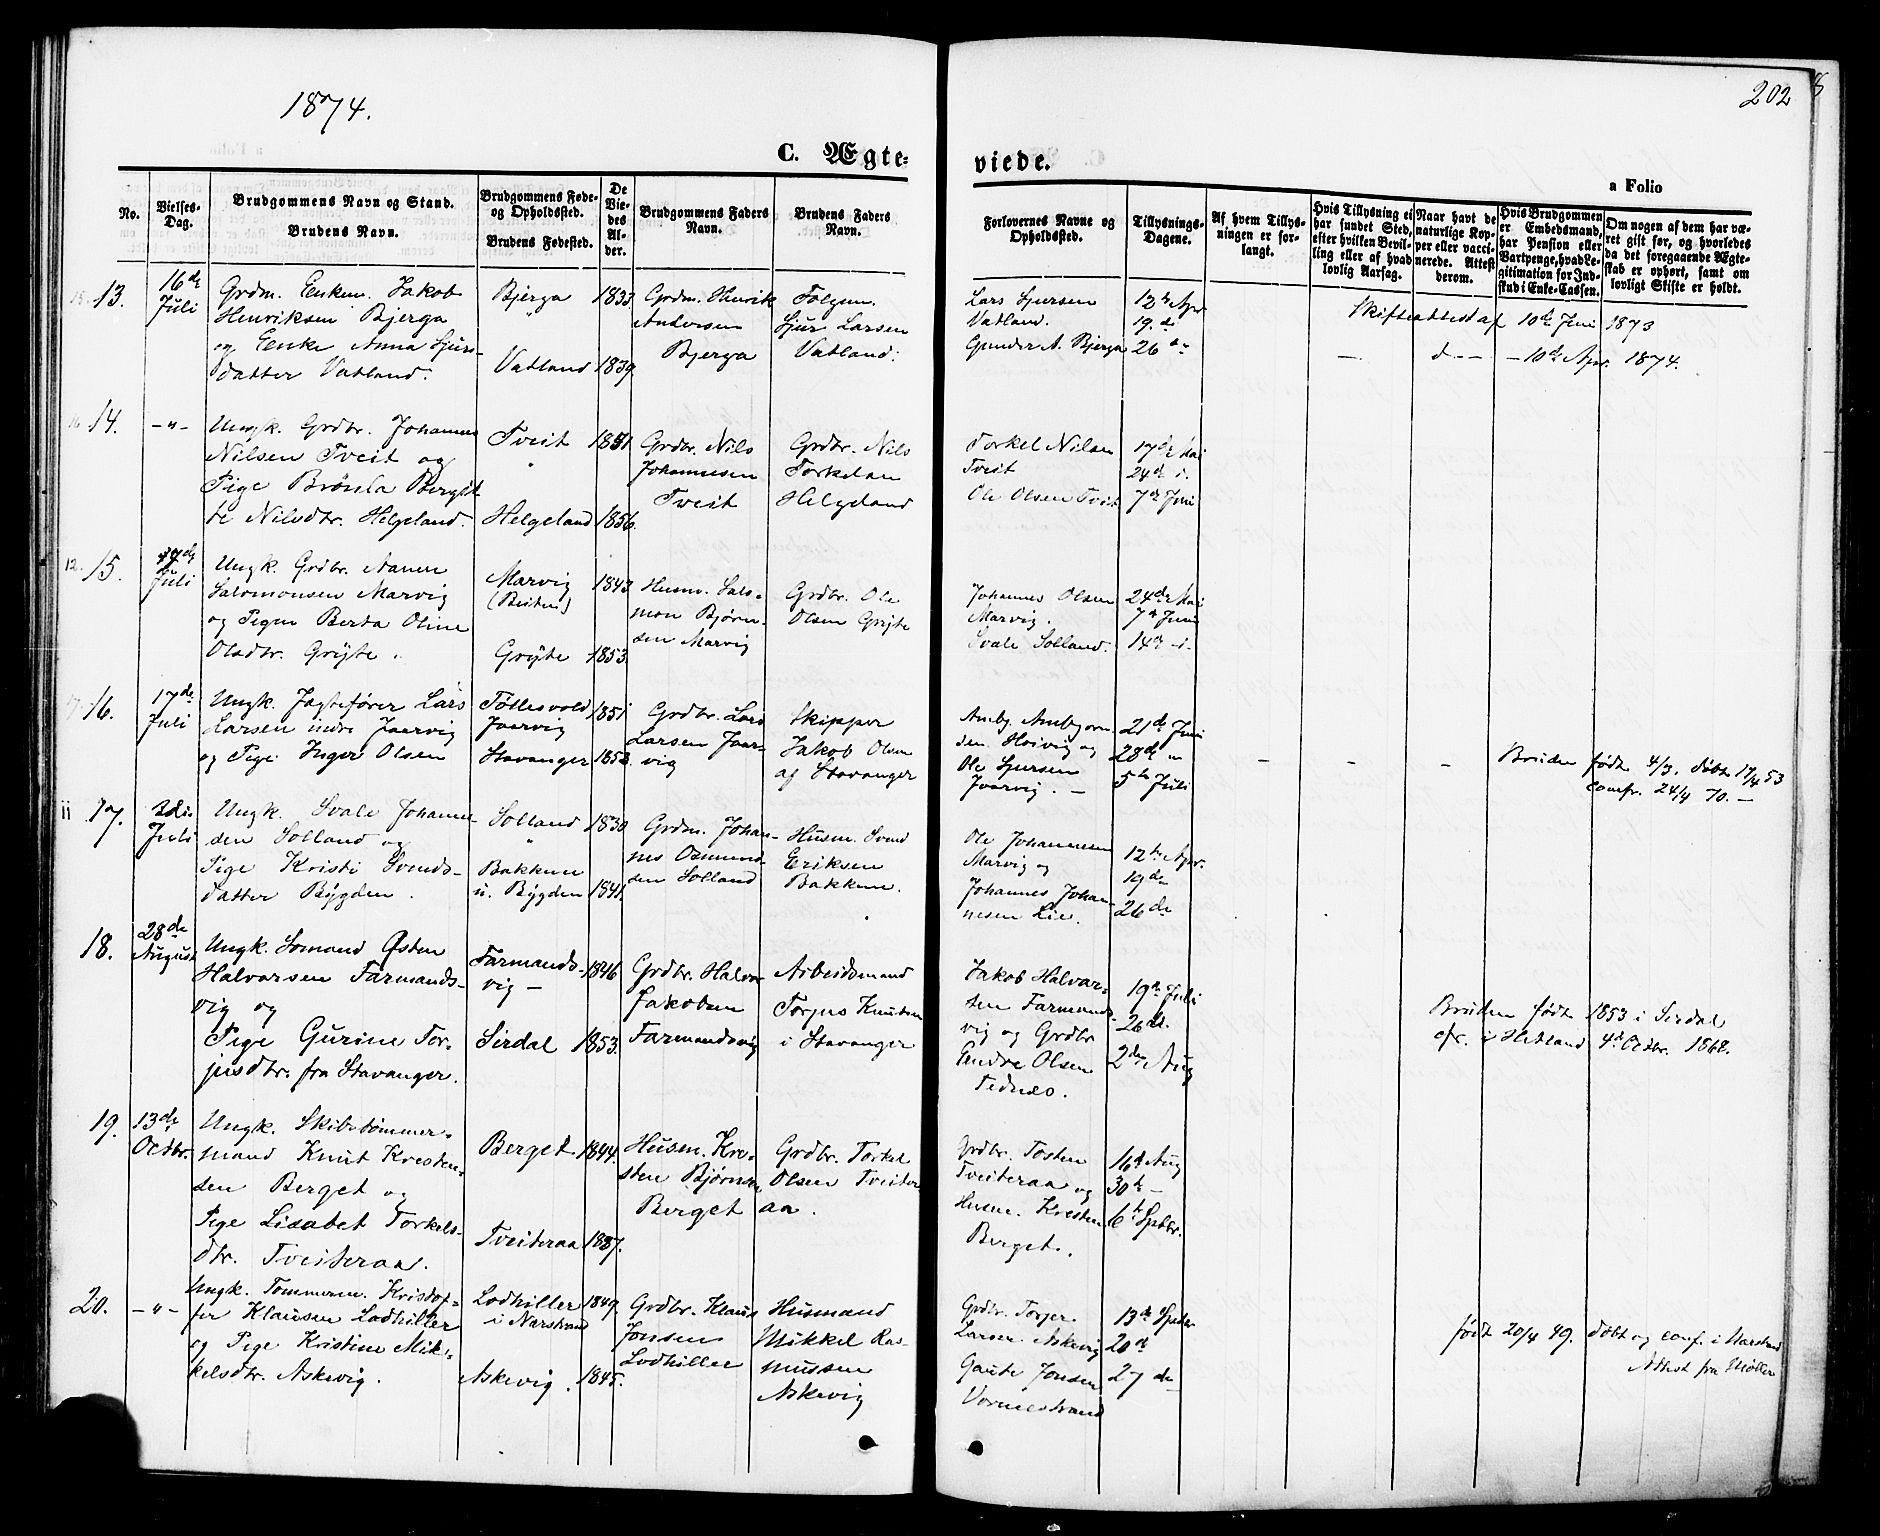 1874.
202
C. Ægte-
viede.
a Folio
No.
Vielses-
Dag.
Brudgommens Navn og Stand.
Brudens Navn.
Brudgommens Føde-
og Opholdssted.
Brudens Fødested.
De
Vie-
des
Al-
der.
Brudgommens Faders
Navn.
Brudens Faders
Navn.
Forlovernes Navne og
Opholdssted.
Tillysnings-
Dagene.
Af hvem Tillys-
ningen er for-
langt.
Hvis Tillysning ei
har fundet Sted,
efter hvilken Bevil-
ling eller af hvad
lovlig Aarsag.
Naar havt de
naturlige Kop-
per eller vacci-
nerede. Attest
derom.
Hvis Brudgommen
er Embedsmand,
har Pension eller
Vartpenge, hvad Le-
gitimation for Ind-
skud i Enke-Cassen.
Om nogen af dem har væ-
ret gift før, og hvorledes
da det foregaaende Ægte-
skab er ophørt, samt om
lovligt Skifte er holdt.
13.
16de
Juli
Grdm. Enkem. Jakob
Henriksen Bjerga
og Enke Anna Sjurs-
datter Vatland.
Bjerga
"
Vatland
1833
1839.
Grdm. Henrik
Andersen
Bjerga
Følgem.
Sjur Larsen
Vatland.
Lars Sjursen
Vatland.
Gunder A. Bjerga
12te Apr
19. d
26 d
Skifteattest af 10de Juni 1873
— d — — 10de Apr. 1874.
14.
—"—
Ungk. Grdbr. Johannes
Nilsen Tveit og
Pige Brønla Bergit-
te Nilsdtr. Helgeland.
Tveit
"
Helgeland
1851
1856.
Grdbr. Nils
Johannesen
Tveit
Grdbr. Nils
Torkelsen
Helgeland
Torkel Nilsen
Tveit
Ole Olsen Tveit
17de Mai
24de d.
7de Juni
12.
15.
17de
Juli
Ungk. Grdbr. Aanen
Salomonsen Marvig
og Pigen Berta Oline
Olsdtr. Grøte.
Marvig
Grøte
1843
1853.
Husm. Salo-
mon Bjørn-
sen Marvig
Grdbr. Ole
Olsen Grøte
Johannes Olsen
Marvig.
Svale Solland.
24de Mai
7de Juni
14de d.
16.
17de
Juli
Ungk. Jagtefører Lars
Larsen indre Jaarvig
og Pige Inger Olsen
Tøtlesvold
Jaarvig
Stavanger
1851
1853.
Grdbr. Lars
Larsen Jaar-
vig
Skipper
Jakob Olsen
af Stavanger
Amb. Ambjorn-
sen Hoivig og
Ole Sjursen
Jaarvig. —
21de Juni
28de "
5te Juli
—
—
—
Bruden født 4/3. døbt 17/4 53
comfr. 24/4 70. —
ii
17.
3die
Juli
Ungk. Svale Johanne-
sen Solland og
Pige Kristi Svends-
datter Bygden.
Solland
"
Bakken
u. Bygden
1830
1841.
Grdm. Johan-
nes Osmund-
sen Solland
Husm. Svend
Eriksen
Bakken.
Ole Johannesen
Marvig og
Johannes Johan-
nesen Lie.
12te Apr.
19de
26de
18.
28de
August
Ungk. Sømand Østen
Halvarsen Farmands-
vig og
Pige Gurine Tor-
jusdtr. fra Stavanger.
Farmands-
vig —
Sirdal
1846
1853.
Grdbr. Halvor
Jakobsen
Farmandsvig
Arbeidsmand
Torjus Knutsen
i Stavanger
Jakob Halvar-
sen Farmands-
vig og Grdbr
Endre Olsen
Tednes.
19de Juli
26de.
2den Aug
Bruden født 1853 i Sirdal
cfr. i Hetland 4de Octbr. 1868.
19.
13de
Octbr.
Ungk. Skibstømmer-
mand Knut Kresten-
sen Berget og
Pige Lisabet Torkels-
dtr. Tveiteraa.
Berget
Tveiteraa
1844.
1837.
Husm. Kre-
sten Bjørnsen
Berget
Grdbr. Torkel
Olsen Tveiter-
aa.
Grdbr. Tosten
Tveiteraa og
Husm. Kresten
Berget.
16de Aug
30te —
6te Sptbr.
20.
—"—
Ungk. Tømmerm. Kristof-
fer Klausen Lodhiller
og Pige Kristine Mik-
kelsdtr. Askevig.
Lodhiller
i Narstrand
Askevig.
1849.
1845.
Grdbr. Klaus
Jonsen
Lodhiller
Husmand
Mikkel Ras-
mussen
Askevig
Grdbr. Torjer
Larsen Askevig
Gaute Jonsen
Vormestrand
13de Sptbr
20de
27de
født 20/4 49. døbt og conf. i Narstrand
Attest fra Møller